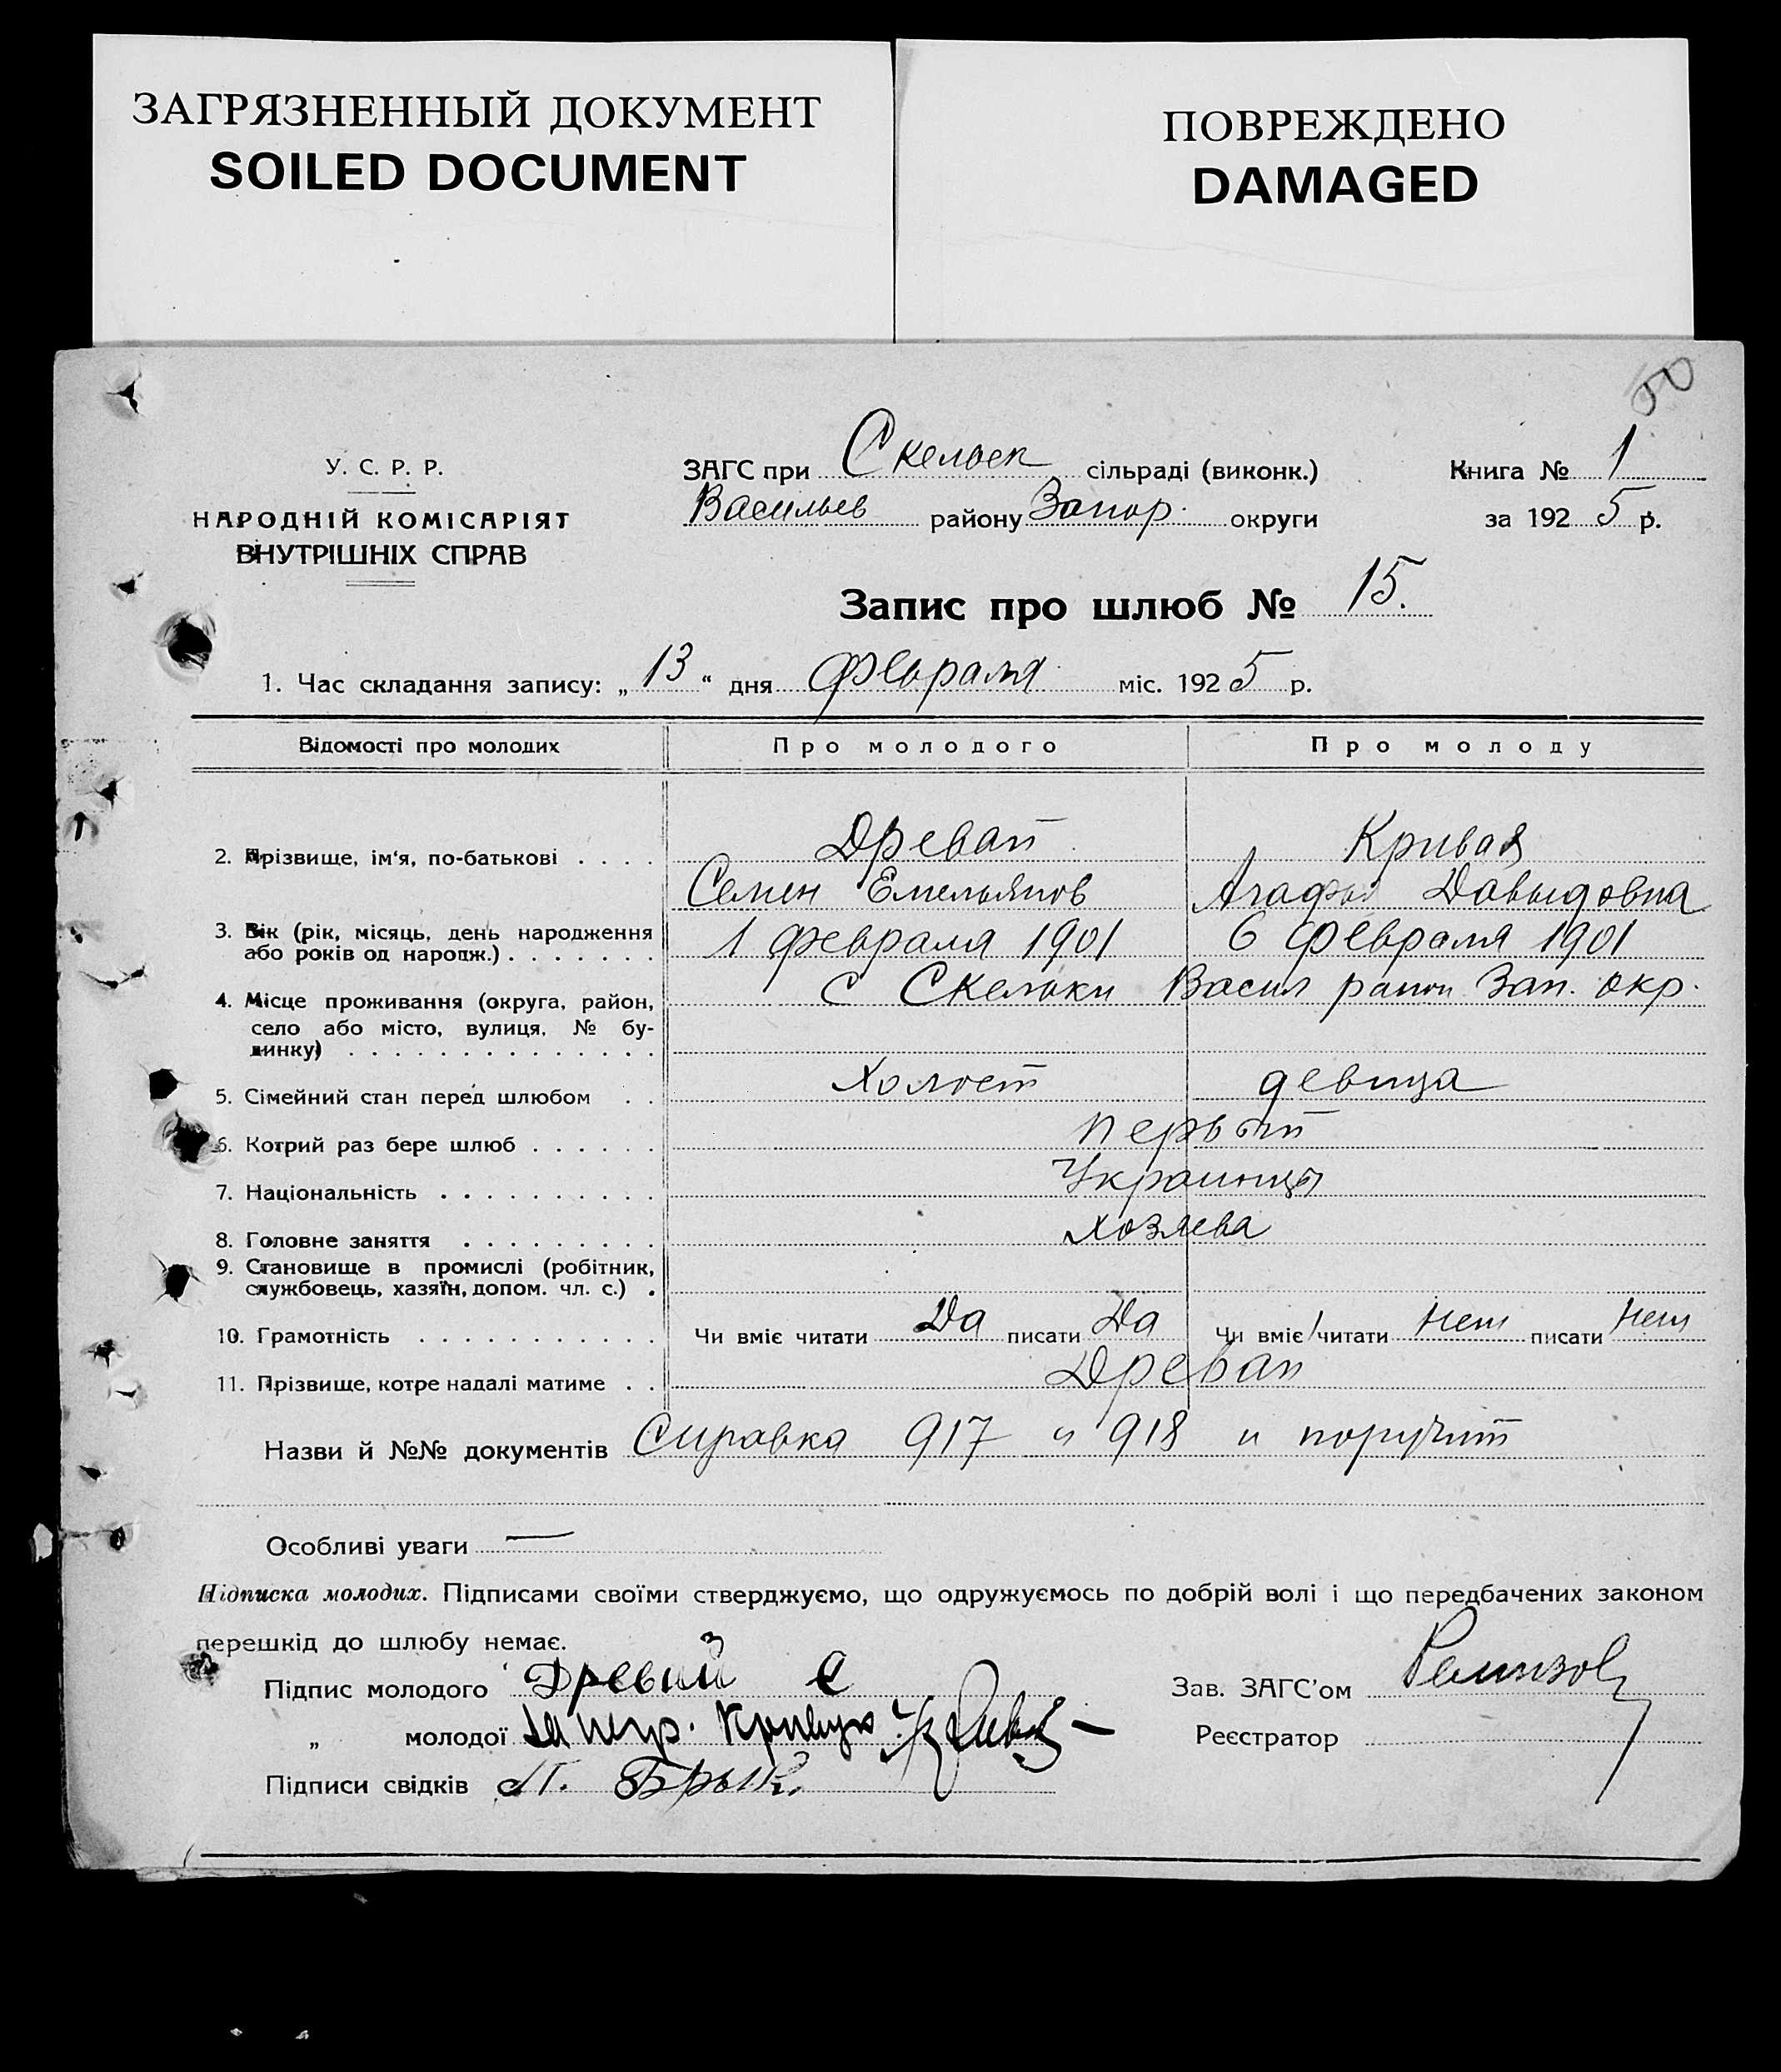 ЗАГРЯЗНЕННЫЙ ДОКУМЕНТ
SOILED DOCUMENT
ПОВРЕЖДЕНО
DAMAGED
50
У. С. Р. Р.
НАРОДНІЙ КОМІСАРІЯТ
ВНУТРІШНІХ СПРАВ
ЗАГС при Скельек сільраді (виконк.)
Васильев району Запор. округи
Книга № 1
за 1925 р.
Запис про шлюб № 15.
1. Час складання запису: „13“ дня февраля міс. 1925 р.
Відомості про молодих Про молодого Про молоду
2. Прізвище, ім‘я, по-батькові . . . . Древай Кривая
Семен Емельянов Агафья Давыдовна
3. Вік (рік, місяць, день народження
або років од народж.) . . . . . . . 1 февраля 1901 6 февраля 1901
4. Місце проживання (округа, район, с Скельки Васил район Зап. окр.
село або місто, вулиця, № бу-
динку) . . . . . . . . . . . . . .
5. Сімейний стан перед шлюбом . . Холост девица
6. Котрий раз бере шлюб . . . . . . первый
7. Національність . . . . . . . . . . Украинцы
8. Головне заняття . . . . . . . . . хозяева
9. Становище в промислі (робітник,
службовець, хазяїн, допом. чл. с.) .
10. Грамотність . . . . . . . . . . . Чи вміє читати Да писати Да Чи вміє читати Нет писати Нет
11. Прізвище, котре надалі матиме . . Древай
Назви й №№ документів Справка 917 и 918 и поручит
Особливі уваги —
Підписка молодих. Підписами своїми стверджуємо, що одружуємось по добрій волі і що передбачених законом
перешкід до шлюбу немає.
Підпис молодого Древий С
„ молодої за негр. Кривую
Підписи свідків П. Брык.
Зав. ЗАГС‘ом Ремизов
Реєстратор